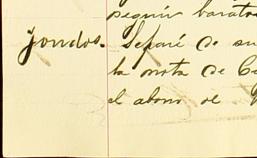 seguir barato
fondos. Separé de su
la nota de Ca
el abono de